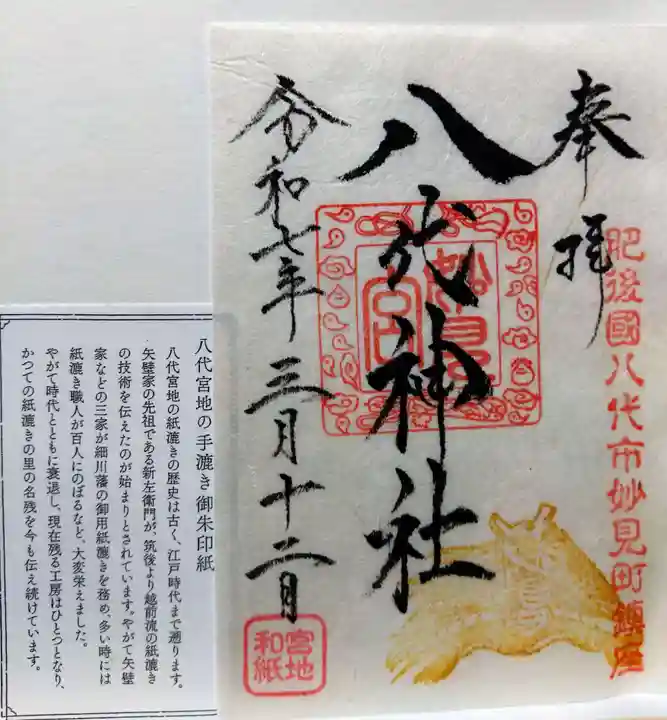 奉拝
肥後國八代市妙見町鎮座
八代神社
妙見宮
令和七年三月十二日
宮地和紙
八代宮地の手漉き御朱印紙
八代宮地の紙漉きの歴史は古く、江戸時代まで遡ります。
矢壁家の先祖である新左衛門が、筑後より越前流の紙漉き
の技術を伝えたのが始まりとされています。やがて矢壁
家などの三家が細川藩の御用紙漉きを務め、多い時には
紙漉き職人が百人にのぼるなど、大変栄えました。
やがて時代とともに衰退し、現在残る工房はひとつとなり、
かつての紙漉きの里の名残を今も伝え続けています。